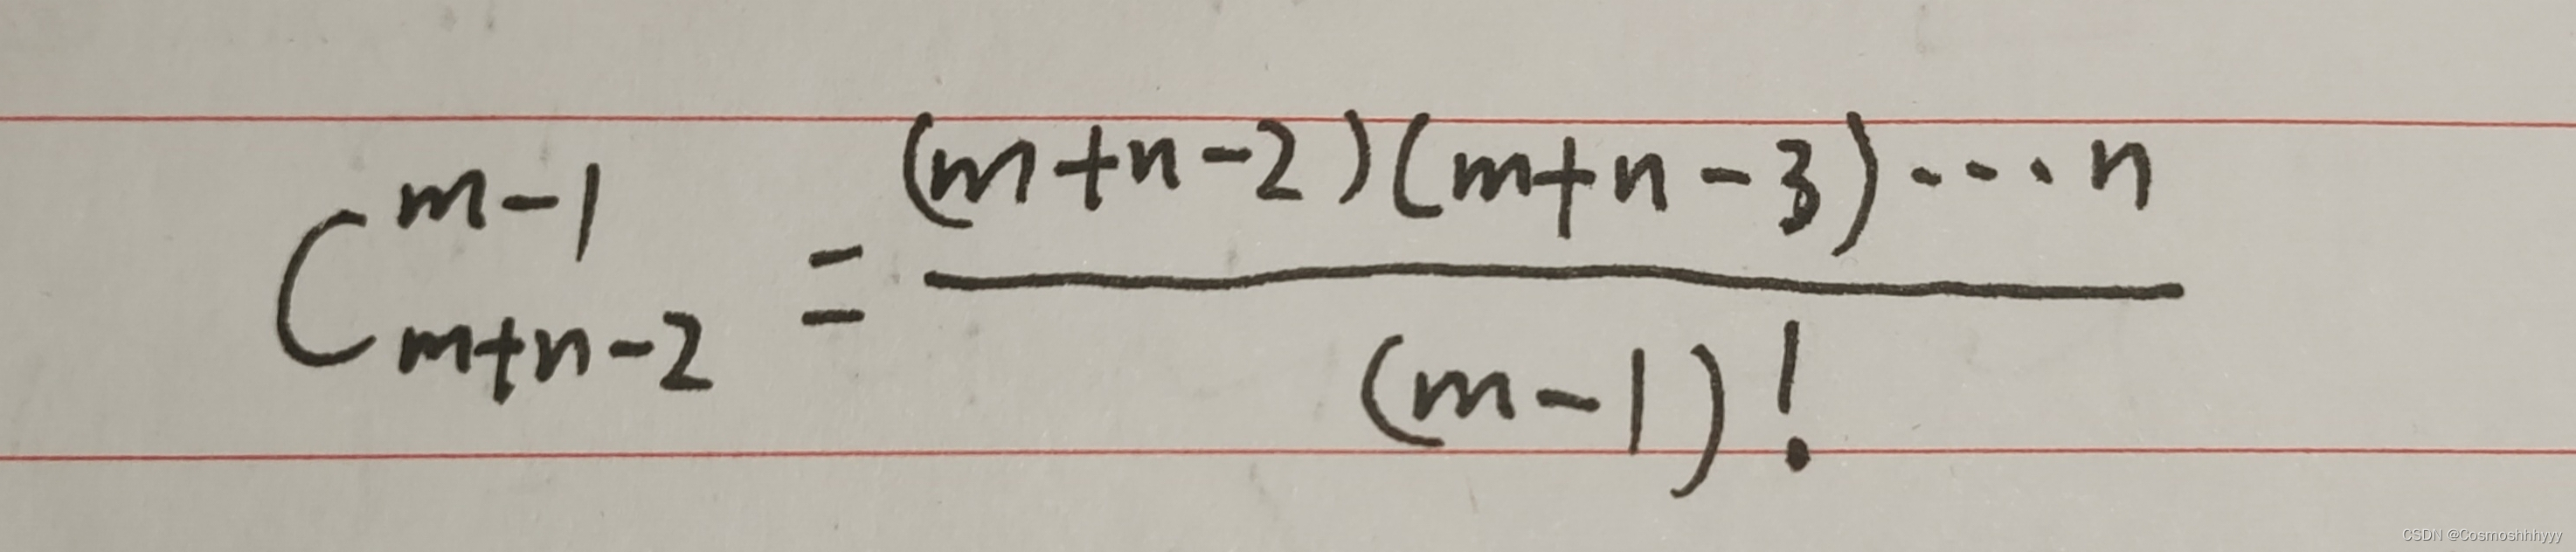 C_{m+n-2}^{m-1} = \frac{(m+n-2)(m+n-3)\cdots n}{(m-1)!}
CSDN @Cosmoshhhyyy